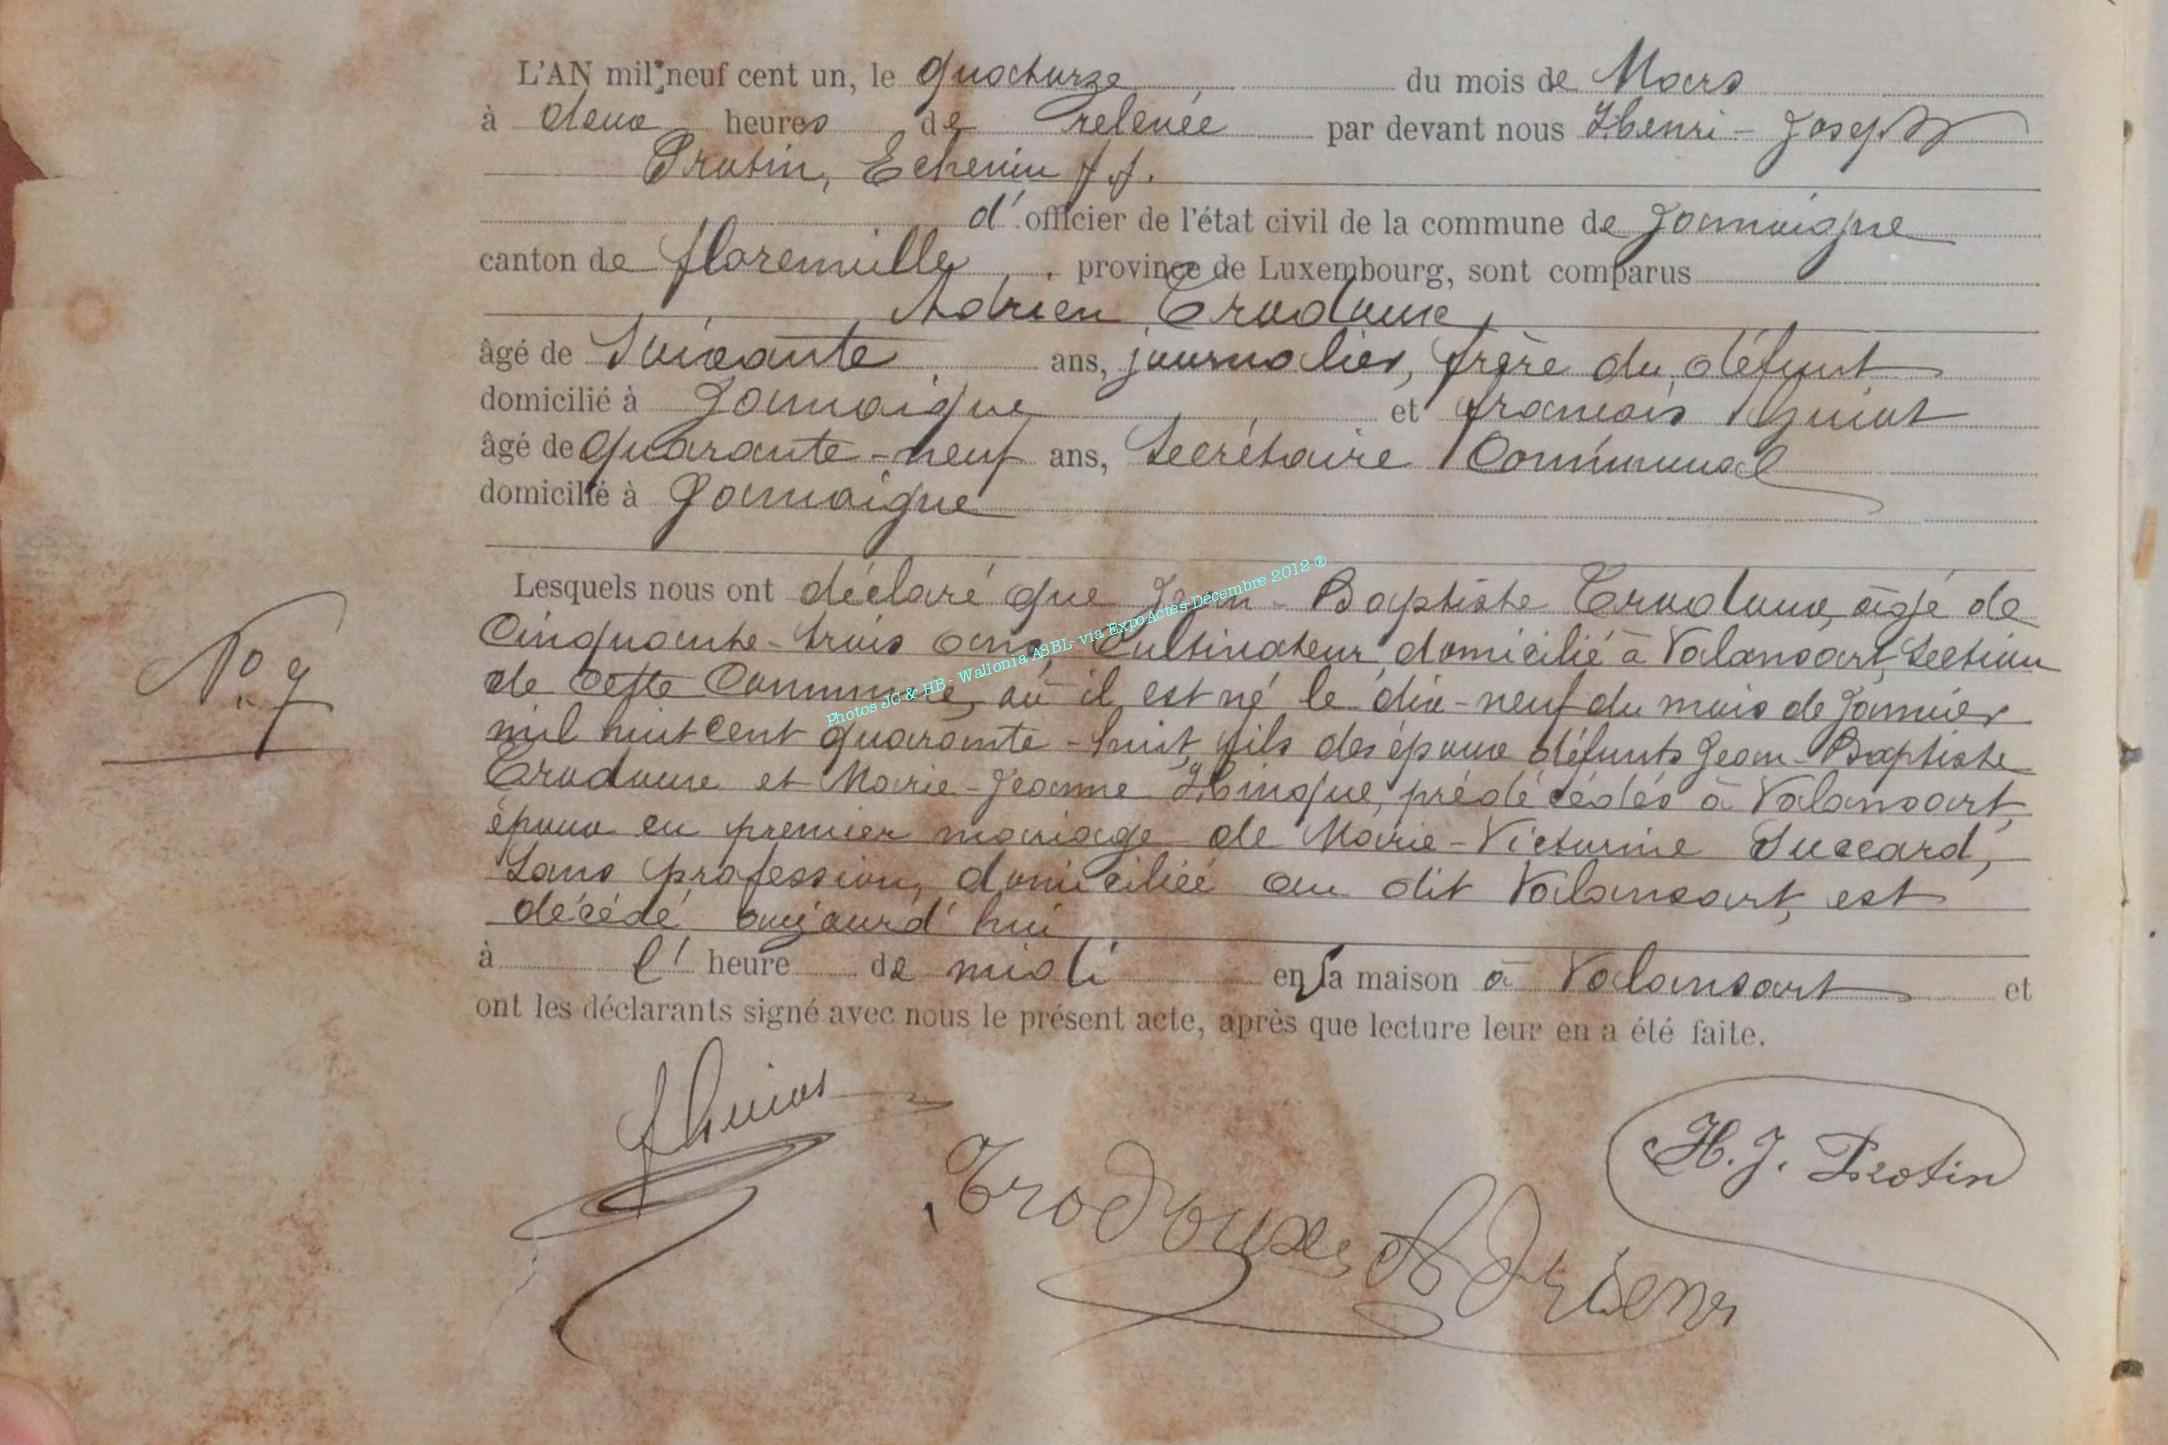 L'AN mil neuf cent un, le quatorze du mois de Mars
à deux heures de relevée par devant nous Henri-Joseph
Protin, Echevin f.f.
d'officier de l'état civil de la commune de Jamoigne
canton de florenville, province de Luxembourg, sont comparus
Adrien Trodoux,
âgé de Soixante ans, journalier, frère du défunt
domicilié à Jamoigne et françois Guiot
âgé de quarante-neuf ans, Secrétaire Communal
domicilié à Jamoigne
Lesquels nous ont déclaré que Jean-Baptiste Trodoux, âgé de
Cinquante-trois ans, Cultivateur, domicilié à Valansart, Section
de cette Commune, où il est né le dix-neuf du mois de Janvier
No 7
mil huit cent quarante-huit, fils des époux défunts Jean-Baptiste
Trodoux et Marie-Jeanne Hinque, prédécédés à Valansart,
époux en premier mariage de Marie-Victorine Suzzard,
Sans profession, domiciliée au dit Valansart, est
décédé aujourd'hui
à l'heure de midi en sa maison à Valansart et
ont les déclarants signé avec nous le présent acte, après que lecture leur en a été faite.
f Guiot
H. J. Protin
Trodoux Adrien
Photos JC & HB - Wallonia ASBL - via ExpoActes Décembre 2012 ®